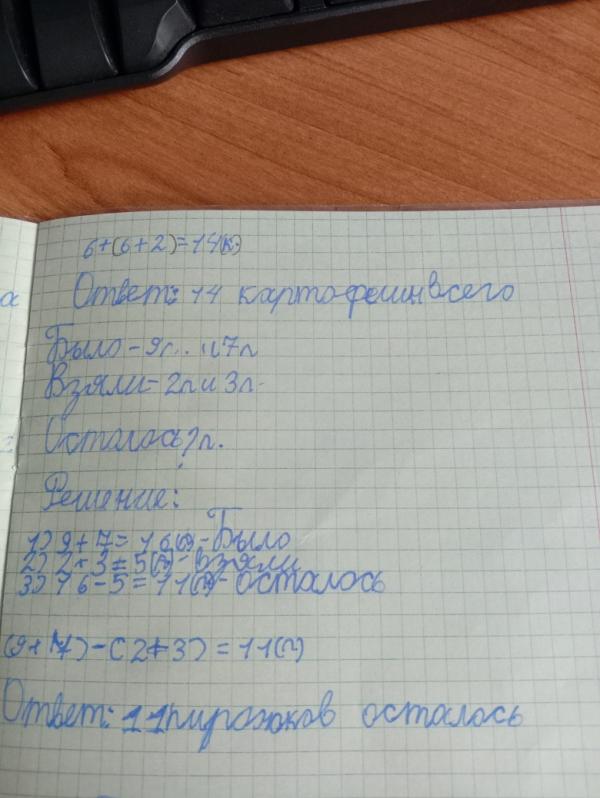 6+(6+2)=14(к)
Ответ: 14 картофелин всего
Было - 9п. и 7п
Взяли - 2п и 3п.
Осталось ? п.
Решение:
1) 9+7=16(п) - Было
2) 2+3=5(п) - взяли
3) 16-5=11(п) - осталось
(9+7)-(2+3)=11(п)
Ответ: 11 пирожков осталось